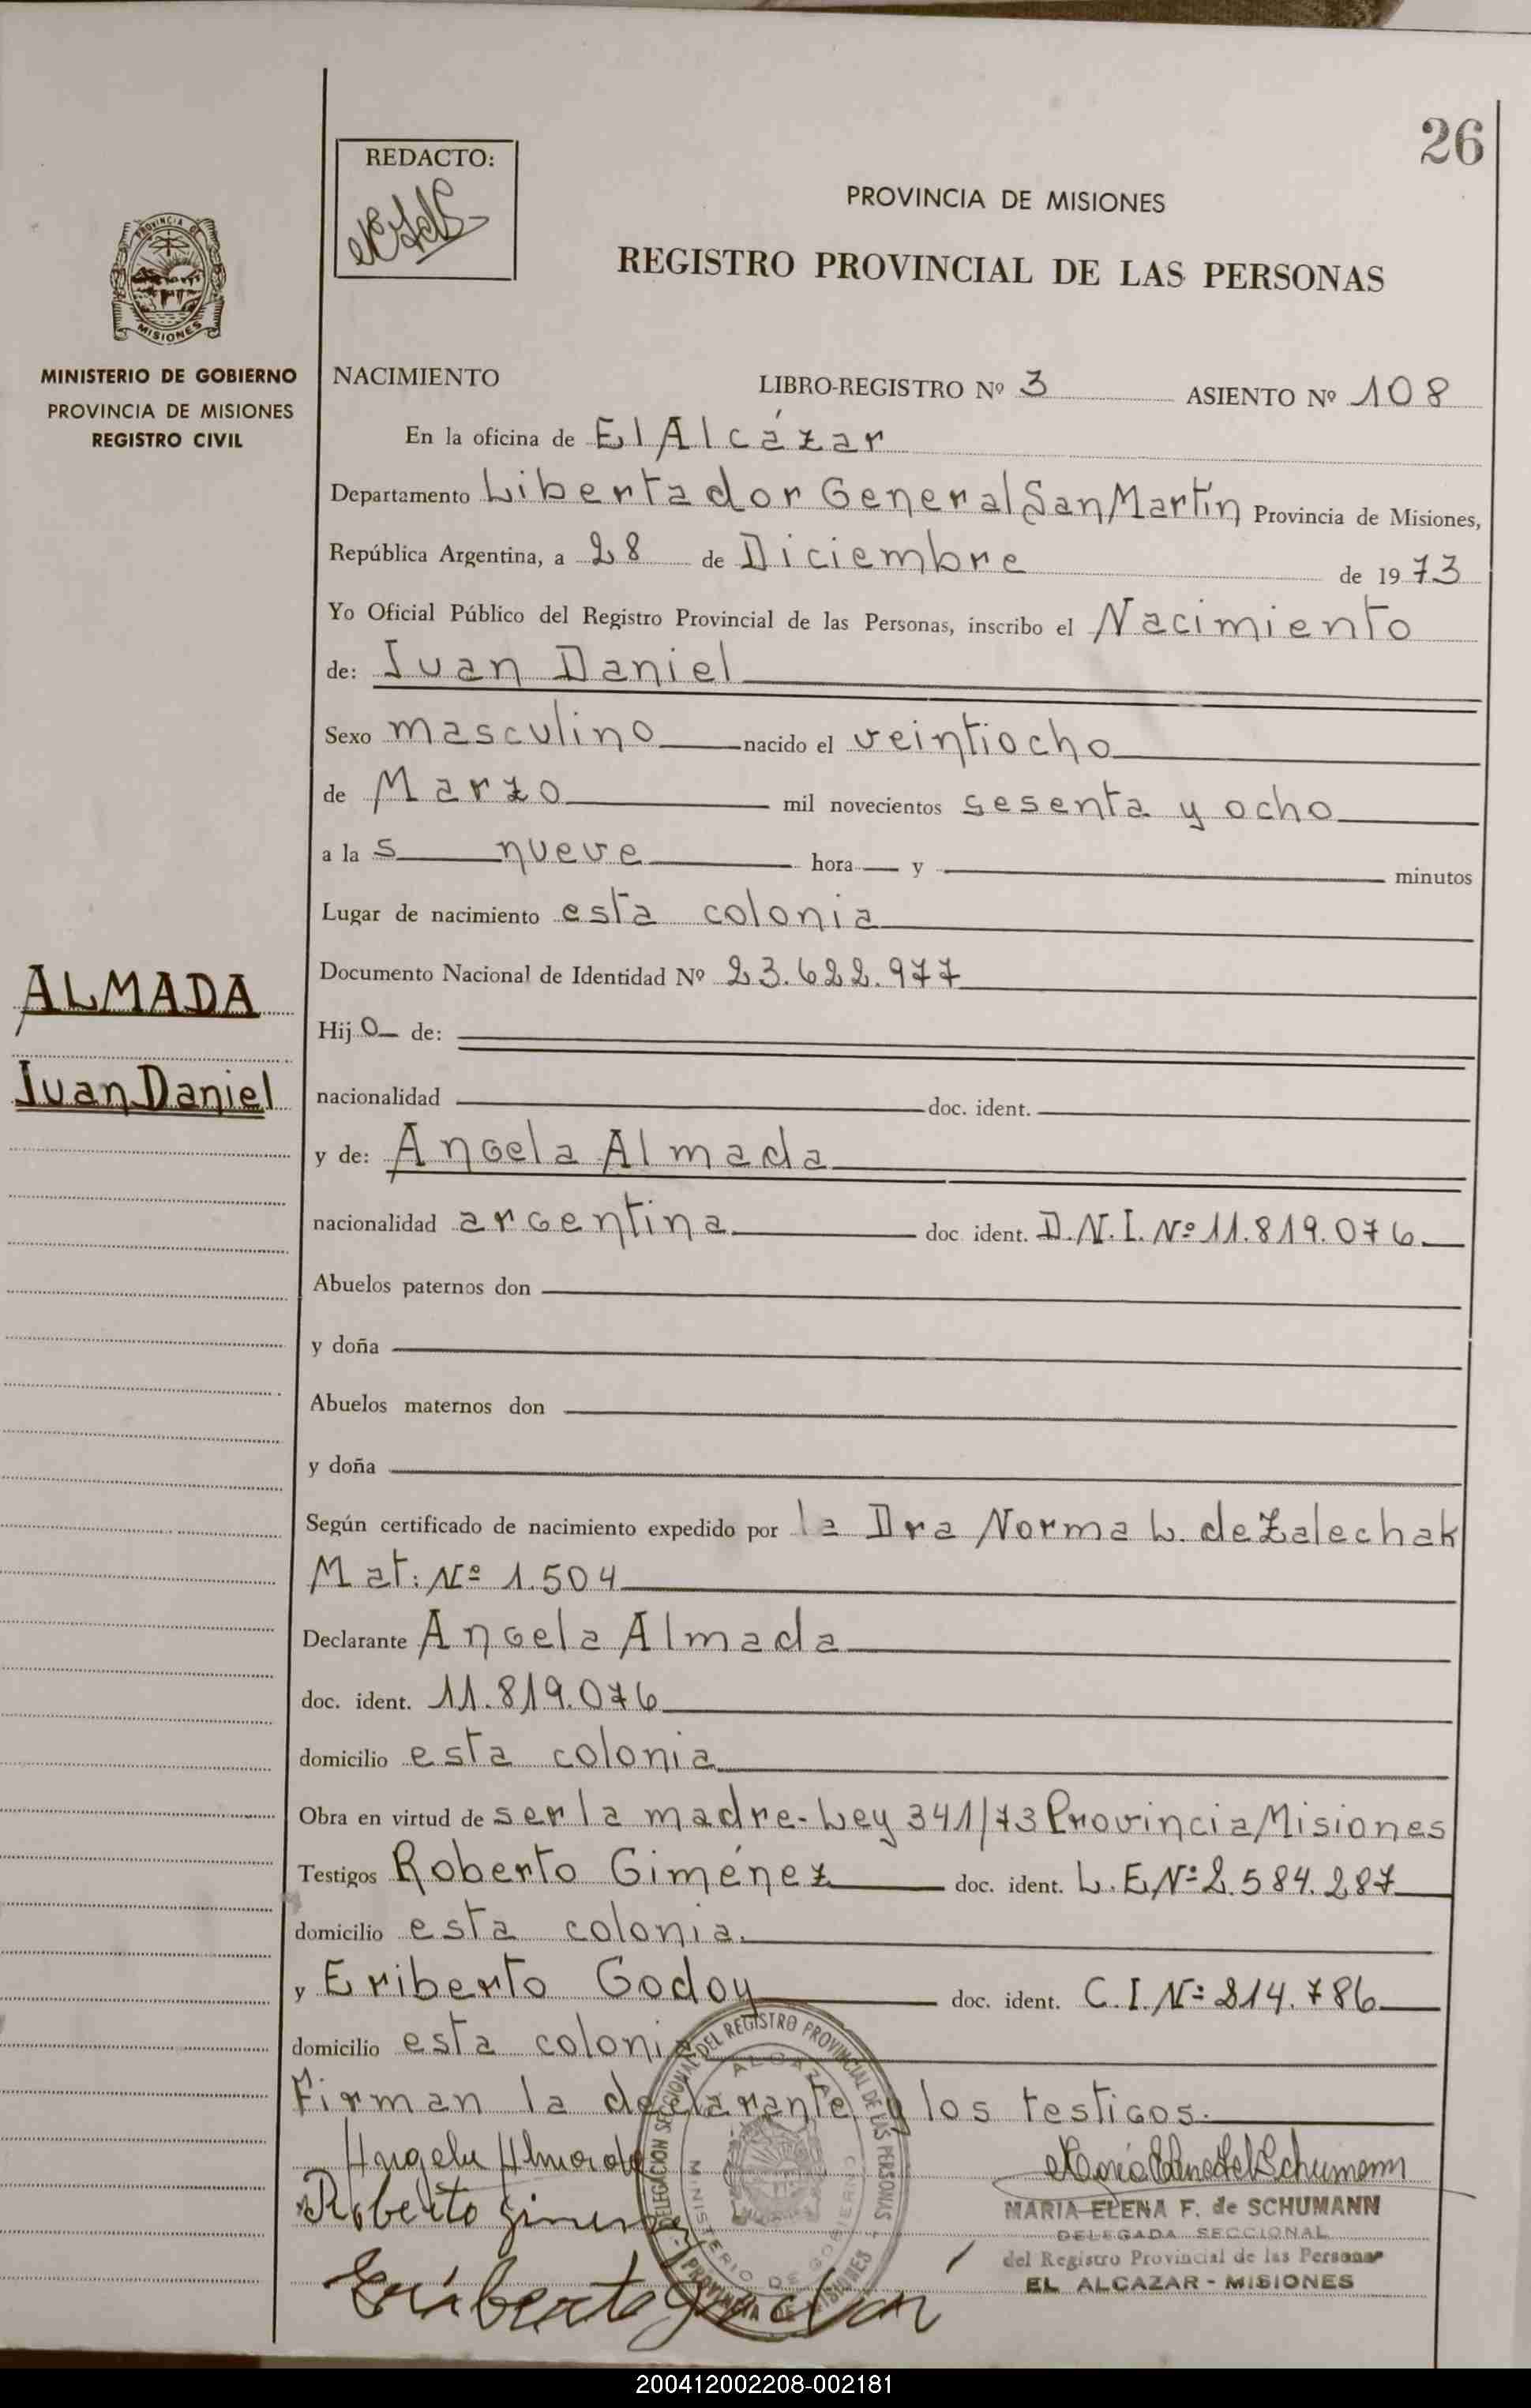 26
REDACTO:
PROVINCIA DE MISIONES
REGISTRO PROVINCIAL DE LAS PERSONAS
PROVINCIA DE
MISIONES
MINISTERIO DE GOBIERNO
PROVINCIA DE MISIONES
REGISTRO CIVIL
NACIMIENTO LIBRO-REGISTRO Nº 3 ASIENTO Nº 108
En la oficina de El Alcázar
Departamento Libertador General San Martín Provincia de Misiones,
República Argentina, a 28 de Diciembre de 1973
Yo Oficial Público del Registro Provincial de las Personas, inscribo el Nacimiento
de: Juan Daniel
Sexo masculino nacido el veintiocho
de Marzo mil novecientos sesenta y ocho
a la s nueve hora y minutos
Lugar de nacimiento esta colonia
Documento Nacional de Identidad Nº 23.622.977
ALMADA
Juan Daniel
Hij o de:
nacionalidad doc. ident.
y de: Angela Almada
nacionalidad argentina doc ident. D.N.I. Nº 11.819.076
Abuelos paternos don
y doña
Abuelos maternos don
y doña
Según certificado de nacimiento expedido por la Dra Norma L. de Zalechak
Mat: Nº 1.504
Declarante Angela Almada
doc. ident. 11.819.076
domicilio esta colonia
Obra en virtud de ser la madre - Ley 341/73 Provincia Misiones
Testigos Roberto Giménez doc. ident. L.E Nº 2.584.287
domicilio esta colonia.
y Eriberto Godoy doc. ident. C.I. Nº 214.786
domicilio esta colonia
Firman la declarante y los testigos.
Angela Almada
Roberto Gimenez
MARIA ELENA F. de SCHUMANN
DELEGADA SECCIONAL
del Registro Provincial de las Personas
EL ALCAZAR - MISIONES
DELEGACION SECCIONAL DEL REGISTRO PROVINCIAL DE LAS PERSONAS
PROVINCIA DE MISIONES
ALCAZAR
MINISTERIO DE GOBIERNO
200412002208-002181